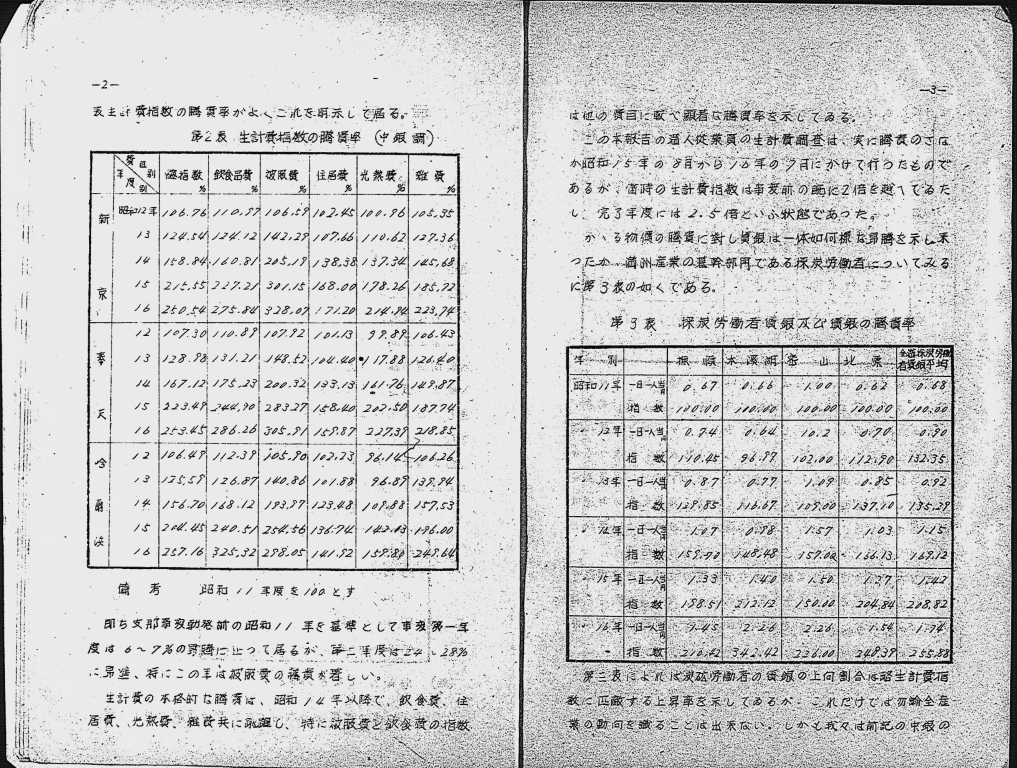 —2—
表生計費指数の騰貴率がよくこれを明示して居る。
第2表 生計費指数の騰貴率 (中銀調)
費目別 年度別 総指数% 飲食品費% 被服費% 住居費% 光熱費% 雑費%
新京 昭和12年 106.76 110.97 106.59 102.45 100.96 105.35
13 124.54 124.12 142.29 107.66 110.62 127.36
14 158.84 160.81 205.19 138.38 137.34 145.68
15 215.55 227.21 301.15 168.00 178.26 185.72
16 250.54 275.84 328.07 171.20 214.94 223.94
奉天 12 107.30 110.89 107.92 101.13 99.89 106.43
13 128.98 131.21 148.52 104.40 117.88 126.40
14 167.12 175.23 200.32 133.13 161.76 149.87
15 223.49 244.90 283.27 158.40 202.50 187.74
16 253.45 286.26 305.91 159.87 227.39 218.85
哈爾浜 12 106.49 112.39 105.90 102.23 96.14 106.26
13 125.59 126.87 140.86 101.88 96.89 139.94
14 156.70 168.12 193.97 123.48 109.88 157.53
15 204.45 240.51 254.56 136.74 142.13 196.00
16 257.16 325.32 298.05 141.92 159.80 249.64
備考 昭和11年度を100とす
即ち支那事変勃発前の昭和11年を基準として事変第一年
度は6~7%の昇騰に止って居るが、第二年度は24~28%
に昇進、特にこの年は被服費の騰貴が著しい。
生計費の本格的な騰貴は、昭和14年以降で、飲食費、住
居費、光熱費、雑費共に飛躍し、特に被服費と飲食費の指数
—3—
は他の費目に較べ顕著な騰貴率を示してゐる。
この本報告の満人従業員の生計費調査は、実に騰貴のさな
か昭和15年の8月から16年の9月にかけて行つたもので
あるが、当時の生計費指数は事変前の既に2倍を越へてゐた
し、完了年度には2.5倍といふ状態であつた。
かゝる物価の騰貴に対し賃銀は一体如何様な昇騰を示し来
つたか、満洲産業の基幹部門である採炭労働者についてみる
に第3表の如くである。
第3表 採炭労働者賃銀及び賃銀の騰貴率
年別 撫順 本溪湖 密山 北票 全満採炭労働者賃銀平均
昭和11年 一日一人当円 0.67 0.66 1.00 0.62 0.68
指数 100.00 100.00 100.00 100.00 100.00
〃12年 一日一人当円 0.74 0.64 10.2 0.70 0.90
指数 110.45 96.97 102.00 112.90 132.35
〃13年 一日一人当円 0.87 0.77 1.09 0.85 0.92
指数 129.85 116.67 109.00 137.10 135.29
〃14年 一日一人当円 1.07 0.98 1.57 1.03 1.15
指数 159.70 148.48 157.00 166.13 169.12
〃15年 一日一人当円 1.33 1.40 1.50 1.27 1.42
指数 198.51 212.12 150.00 204.84 208.82
〃16年 一日一人当円 1.45 2.26 2.26 1.54 1.74
〃 指数 216.42 342.42 226.00 248.39 255.88
第三表によれば炭砿労働者の賃銀の上向割合は略生計費指
数に匹敵する上昇率を示してゐるが、これだけでは勿論全産
業の動向を識ることは出来ない。しかも我々は前記の中銀の